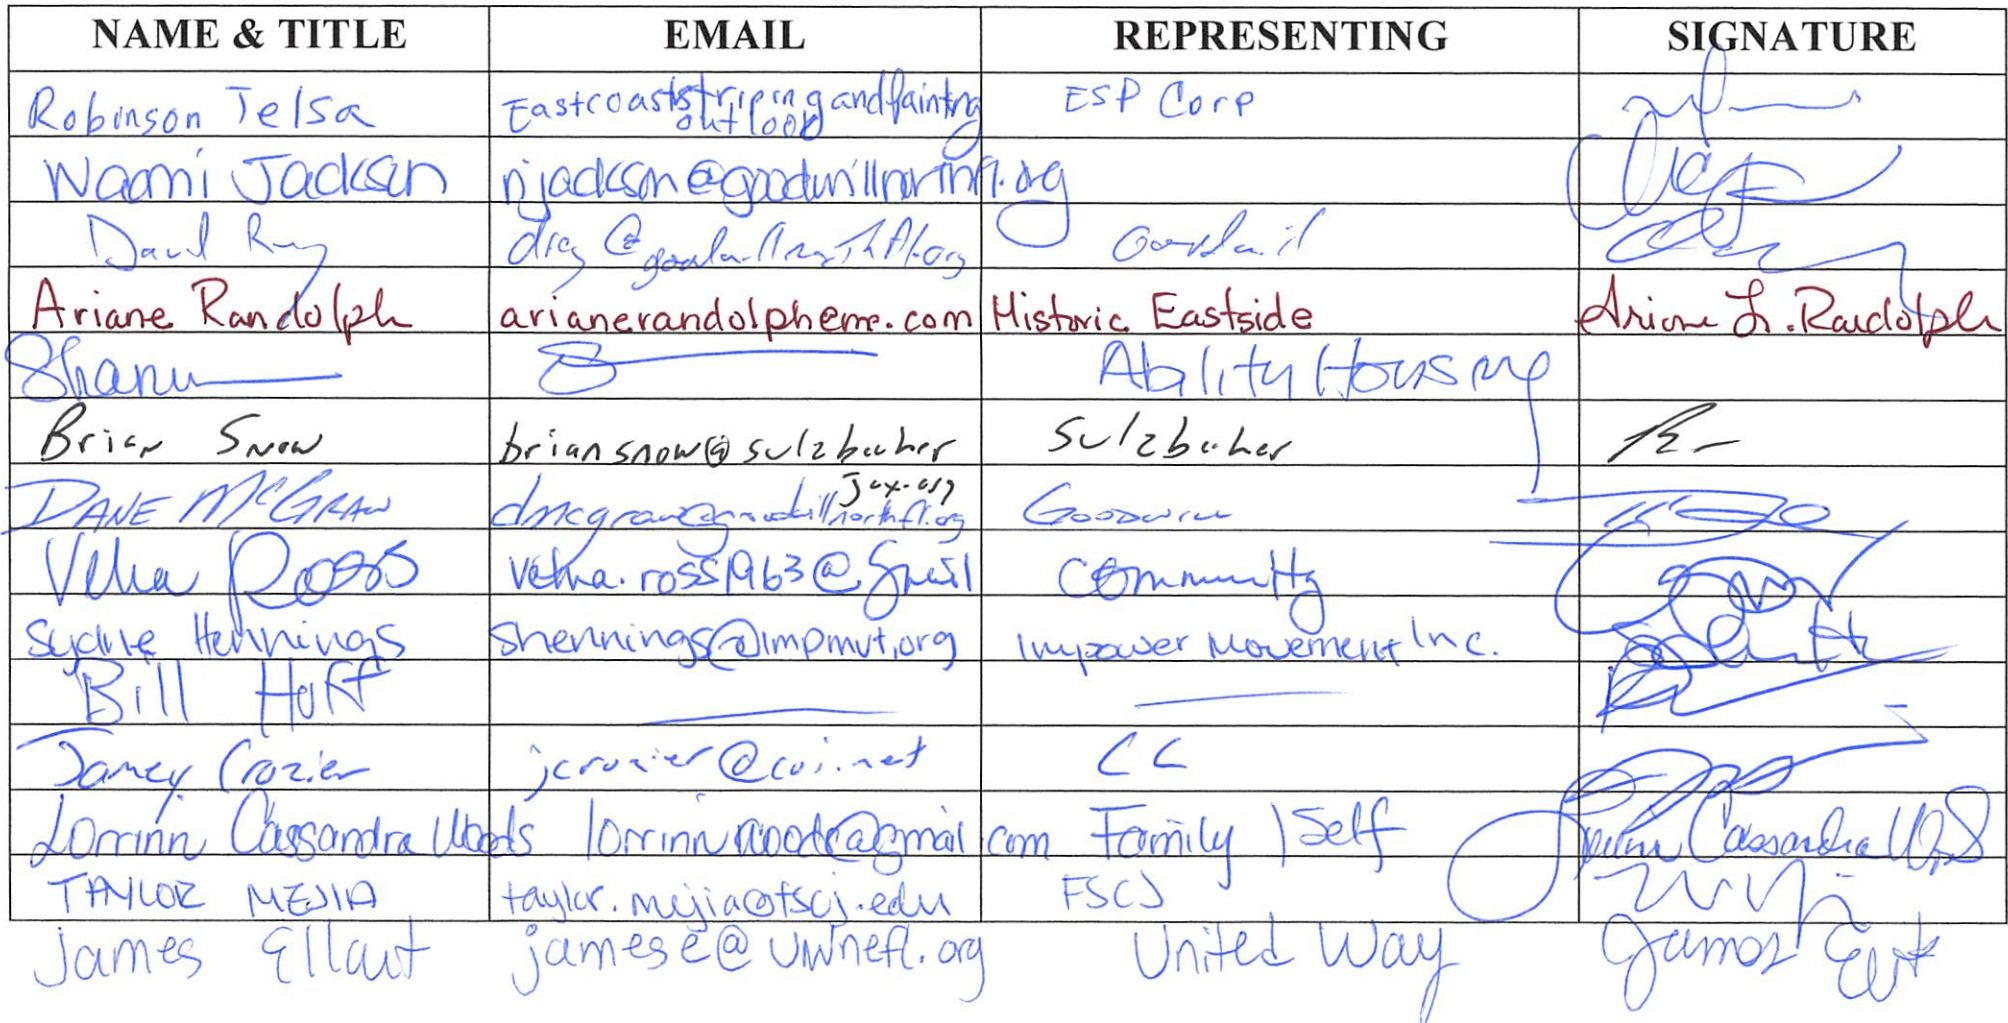 NAME & TITLE EMAIL REPRESENTING SIGNATURE
Robinson Telsa Eastcoaststripingandpainting ESP Corp
outlook
Naomi Jackson njackson@goodwillnorthfl.org
David Rey drey@goodwillnorthfl.org Goodwill
Ariane Randolph arianerandolph@me.com Historic Eastside Ariane L. Randolph
Ability Housing
Brian Snow briansnow@sulzbacher Sulzbacher
Jax.org
DANE MCGRAW dmcgraw@goodwillnorthfl.org GOODWILL
Velma Ross velma.ross1963@gmail Community
Hennings shennings@impmvt.org Impower Movement Inc.
Bill Hoff
Crozier jcrozier@coj.net CC
Lorrinn Cassandra Woods @gmail.com Family / Self Lorrinn Cassandra
TAYLOR MEJIA taylor.mejia@fscj.edu FSCJ
James jamese@uwnefl.org United Way James